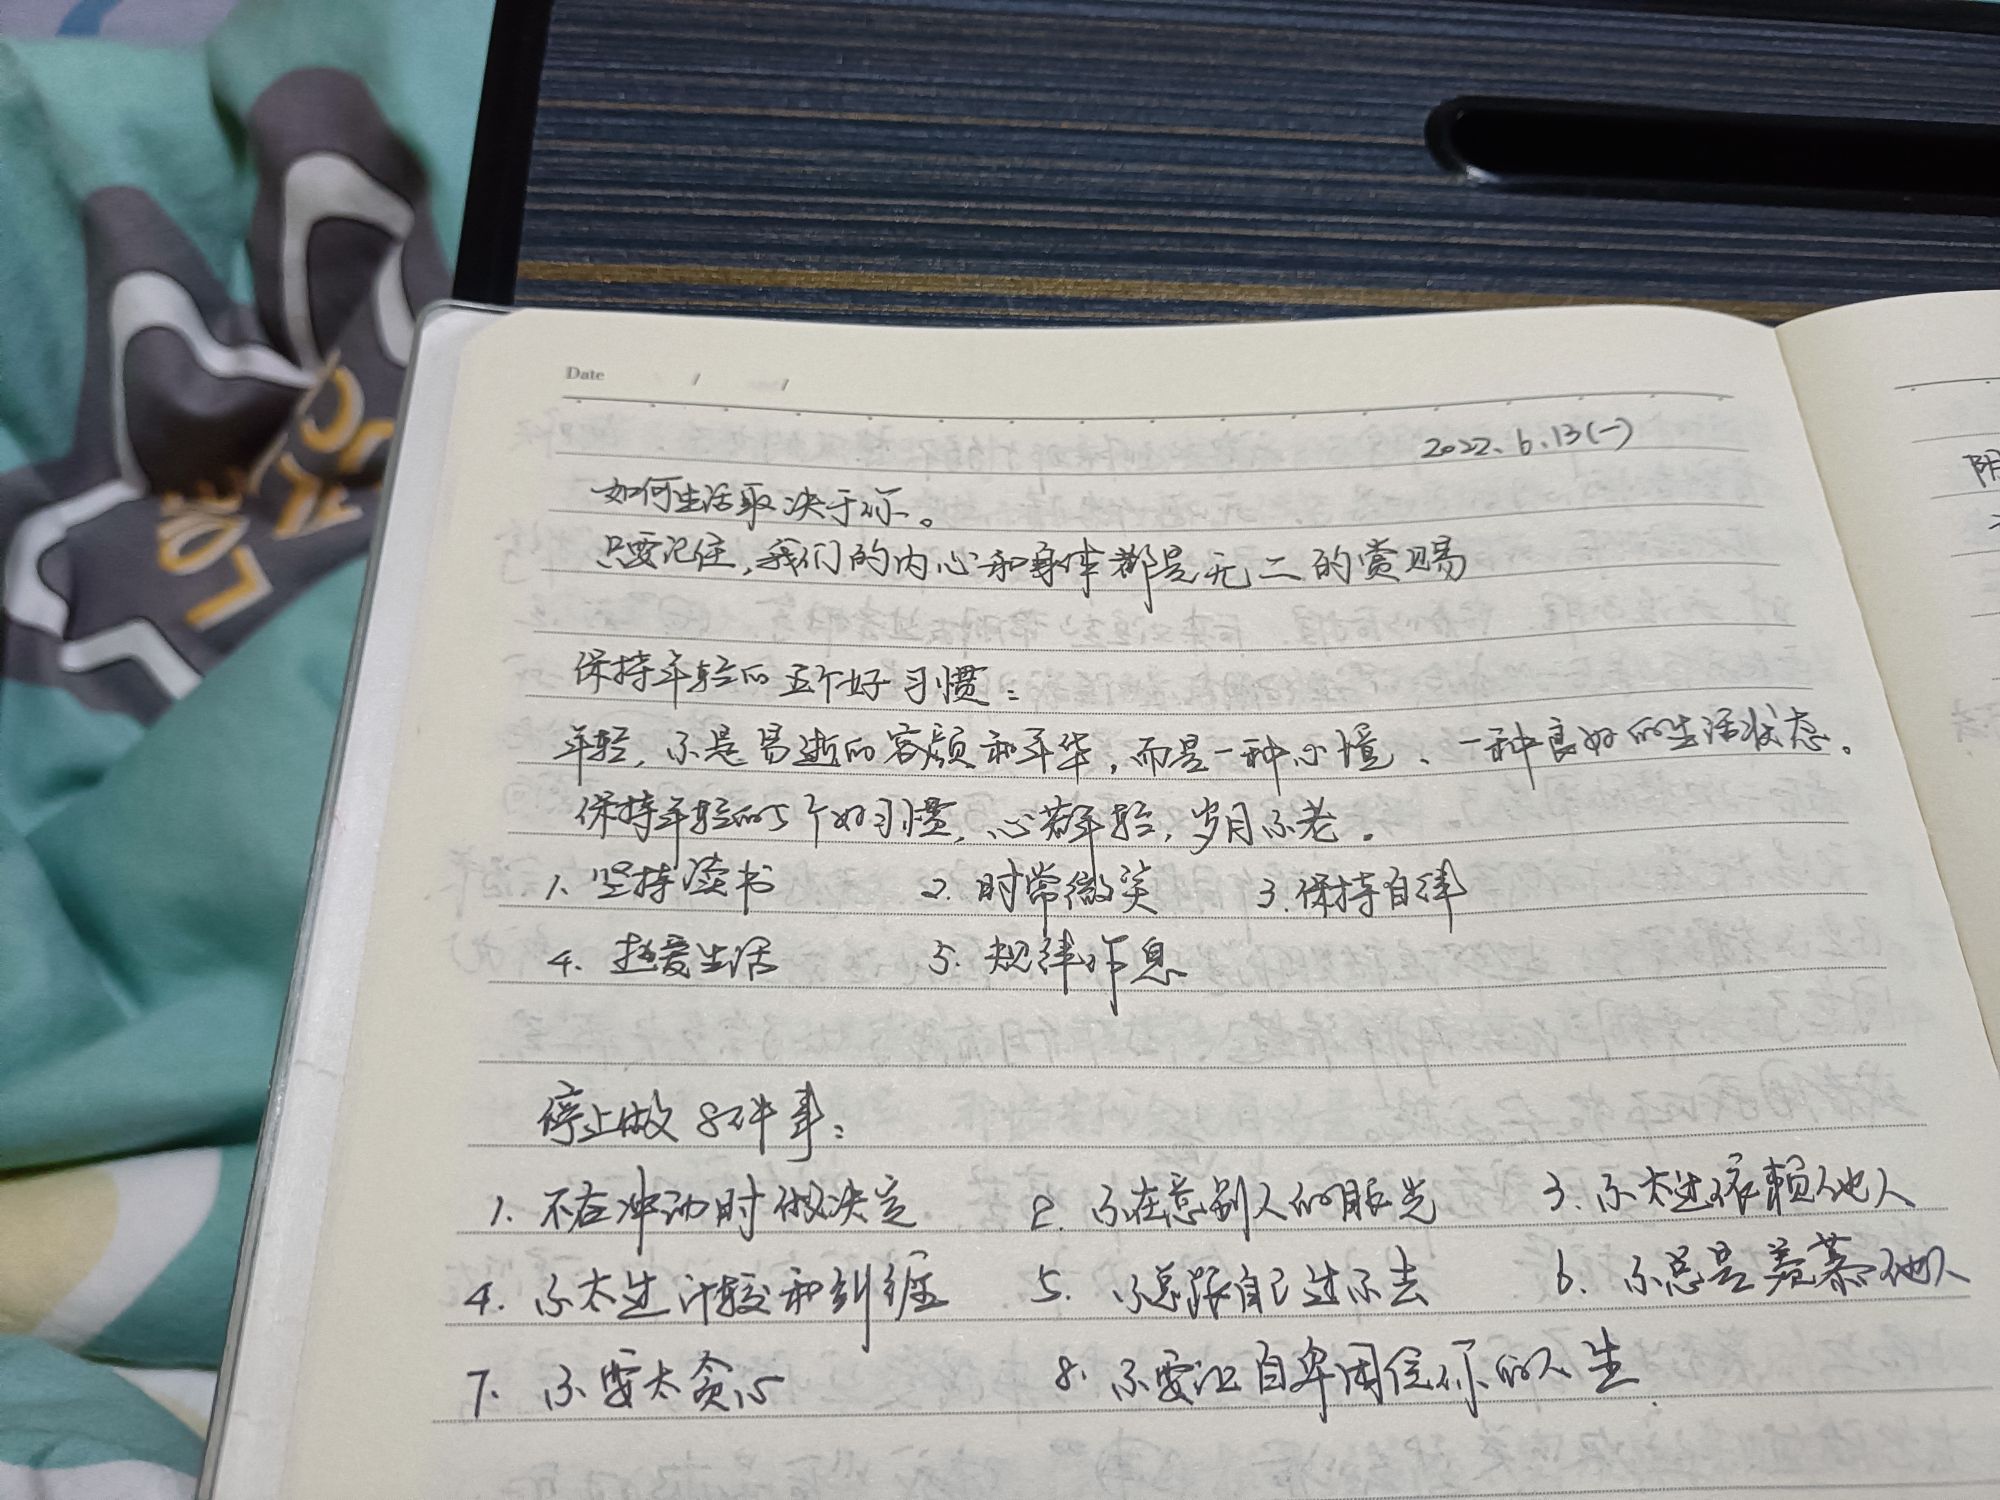 Date / /
2022.6.13(一)
如何生活取决于你。
只要记住,我们的内心和身体都是无二的赏赐
保持年轻的五个好习惯:
年轻,不是易逝的容颜和年华,而是一种心境、一种良好的生活状态。
保持年轻的5个好习惯,心若年轻,岁月不老.
1. 坚持读书 2. 时常微笑 3. 保持自律
4. 热爱生活 5. 规律作息
停止做8件事:
1. 不在冲动时做决定 2. 不在意别人的眼光 3. 不太过依赖他人
4. 不太过计较和纠缠 5. 不总跟自己过不去 6. 不总是羡慕他人
7. 不要太贪心 8. 不要让自卑困住你的人生.